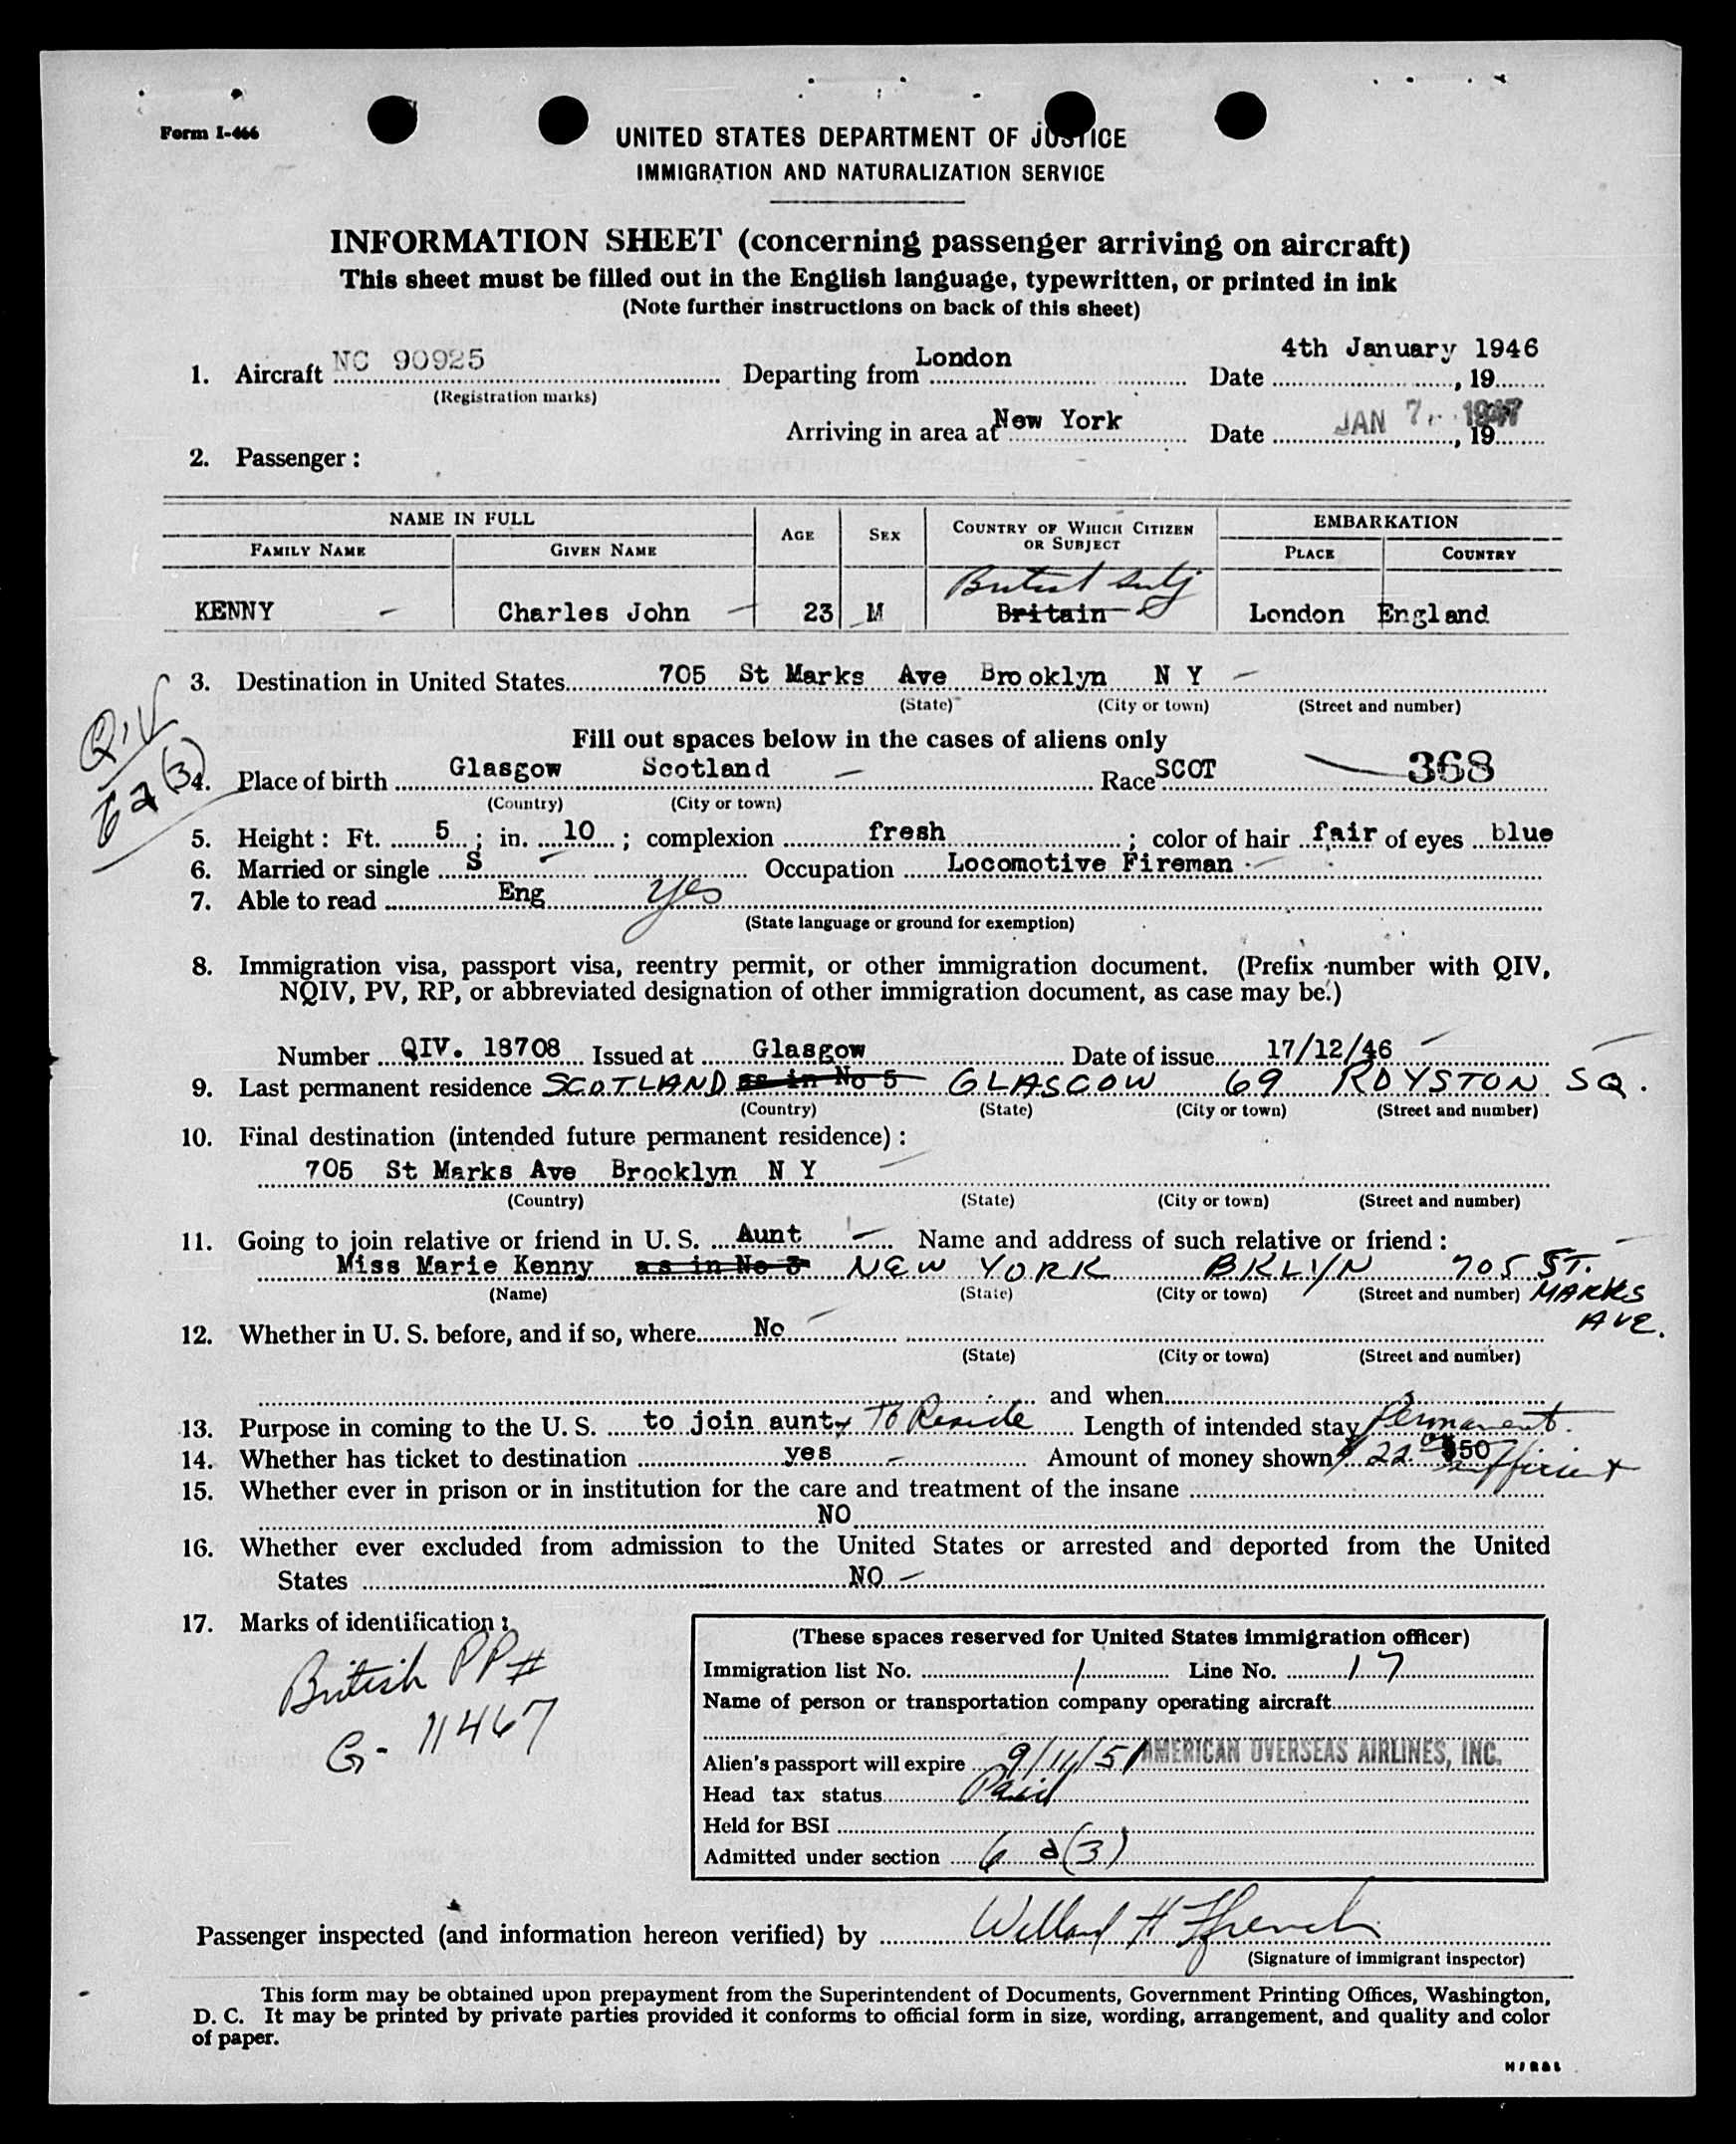 Form I-466
UNITED STATES DEPARTMENT OF JUSTICE
IMMIGRATION AND NATURALIZATION SERVICE
INFORMATION SHEET (concerning passenger arriving on aircraft)
This sheet must be filled out in the English language, typewritten, or printed in ink
(Note further instructions on back of this sheet)
1. Aircraft NC 90925 Departing from London Date 4th January 1946, 19
(Registration marks)
Arriving in area at New York Date JAN 7, 1947, 19
2. Passenger:
NAME IN FULL AGE SEX COUNTRY OF WHICH CITIZEN OR SUBJECT EMBARKATION
FAMILY NAME GIVEN NAME PLACE COUNTRY
British Subj
KENNY - Charles John - 23 M Britain London England
3. Destination in United States 705 St Marks Ave Brooklyn N Y -
(State) (City or town) (Street and number)
QIV
6a(3)
Fill out spaces below in the cases of aliens only
4. Place of birth Glasgow Scotland - Race SCOT 368
(Country) (City or town)
5. Height: Ft. 5; in. 10; complexion fresh; color of hair fair of eyes blue
6. Married or single S Occupation Locomotive Fireman
7. Able to read Eng yes
(State language or ground for exemption)
8. Immigration visa, passport visa, reentry permit, or other immigration document. (Prefix number with QIV,
NQIV, PV, RP, or abbreviated designation of other immigration document, as case may be.)
Number QIV. 18708 Issued at Glasgow Date of issue 17/12/46
9. Last permanent residence SCOTLAND as in No 5 GLASGOW 69 ROYSTON SQ.
(Country) (State) (City or town) (Street and number)
10. Final destination (intended future permanent residence):
705 St Marks Ave Brooklyn N Y
(Country) (State) (City or town) (Street and number)
11. Going to join relative or friend in U. S. Aunt Name and address of such relative or friend:
Miss Marie Kenny as in No 3 NEW YORK BKLYN 705 ST. MARKS AVE.
(Name) (State) (City or town) (Street and number)
12. Whether in U. S. before, and if so, where No
(State) (City or town) (Street and number)
and when
13. Purpose in coming to the U. S. to join aunt, To Reside Length of intended stay Permanent.
14. Whether has ticket to destination yes - Amount of money shown $22.00 $50 sufficient
15. Whether ever in prison or in institution for the care and treatment of the insane
NO
16. Whether ever excluded from admission to the United States or arrested and deported from the United
States NO -
17. Marks of identification:
British PP#
G-11467
(These spaces reserved for United States immigration officer)
Immigration list No. 1 Line No. 17
Name of person or transportation company operating aircraft
AMERICAN OVERSEAS AIRLINES, INC.
Alien's passport will expire 9/11/51
Head tax status Paid
Held for BSI
Admitted under section 6 a(3)
Passenger inspected (and information hereon verified) by Willard H Ffrench
(Signature of immigrant inspector)
This form may be obtained upon prepayment from the Superintendent of Documents, Government Printing Offices, Washington,
D. C. It may be printed by private parties provided it conforms to official form in size, wording, arrangement, and quality and color
of paper.